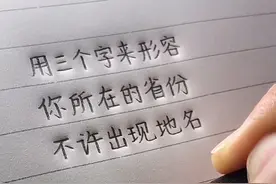 用三个字来形容
你所在的省份
不许出现地名